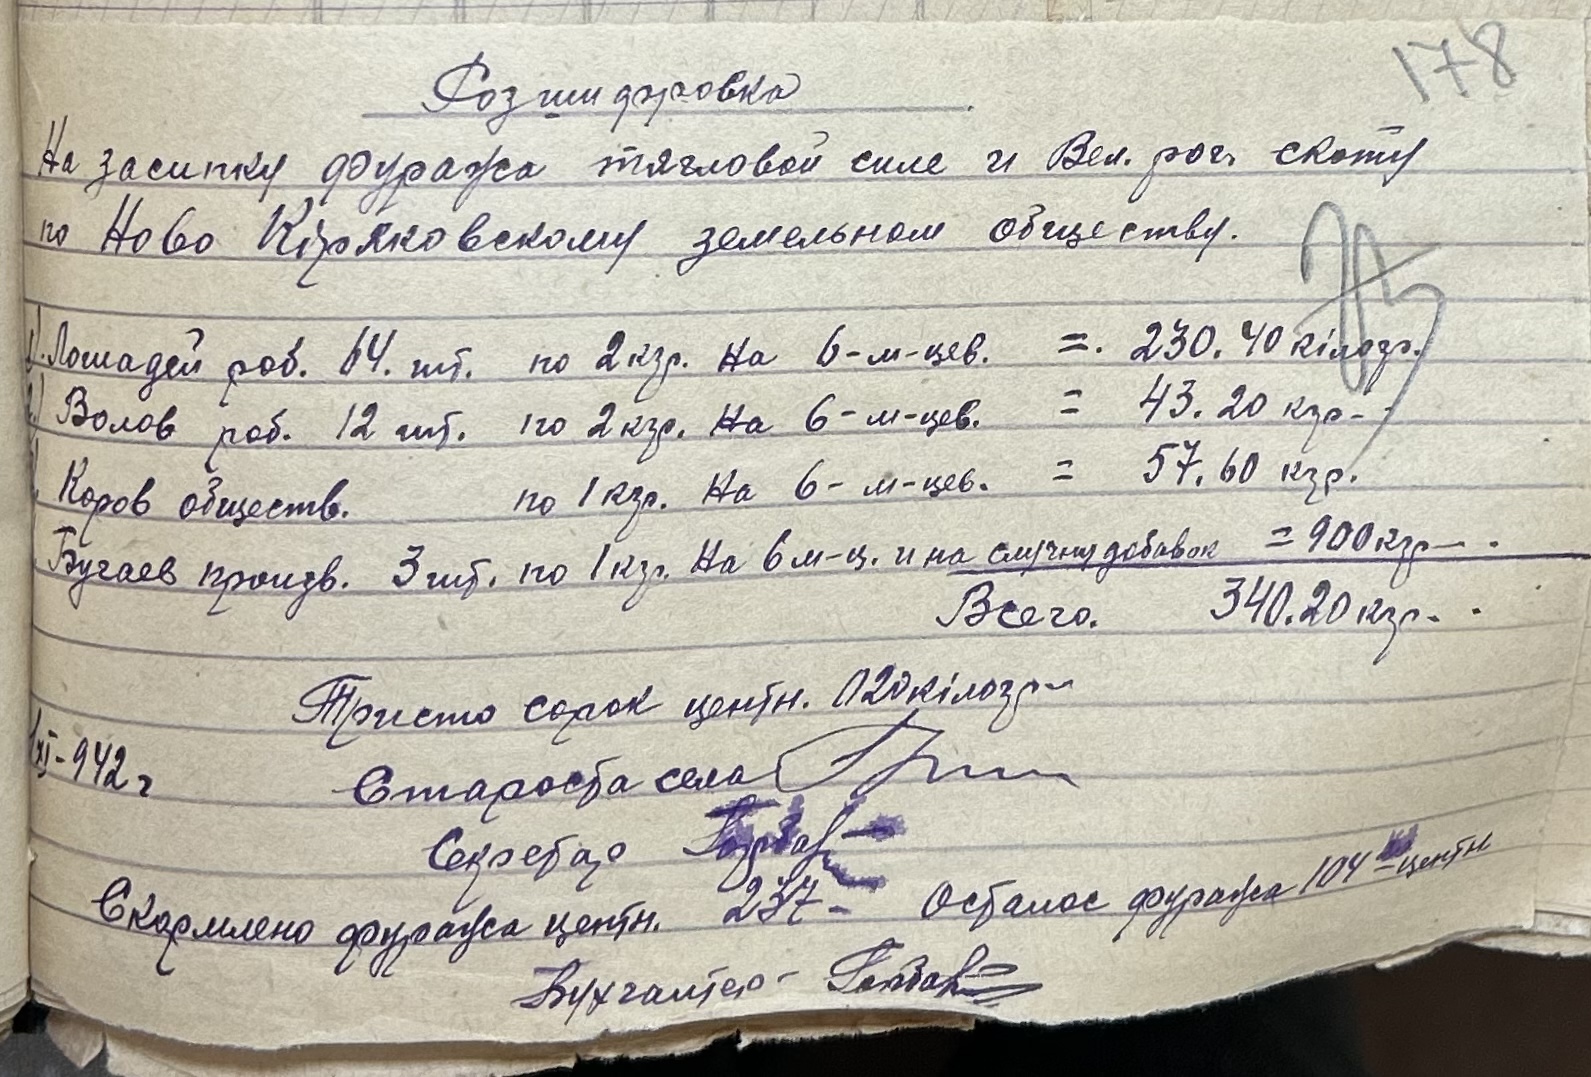 178
Розшифровка
На засипку фуража тягловой силе и Вел. рог. скоту
по Ново Кіряковскому земельном обществу.
1) Лошадей роб. 64. шт. по 2 кгр. На 6-м-цев. =. 230.40 кілогр.
2) Волов роб. 12 шт. по 2 кгр. На 6-м-цев. = 43.20 кгр-
Коров обществ. по 1 кгр. На 6-м-цев. = 57.60 кгр.
Бугаев произв. 3 шт. по 1 кгр. На 6 м-ц. и на случния добавок = 900 кгр-
Всего. 340.20 кгр-
Тристо сорок центн. 020 кілогр-
XI-942 г
Староста села
Секретар
Скормлено фуража центн. 237- Осталос фуража 104 центн
Бухгалтер-